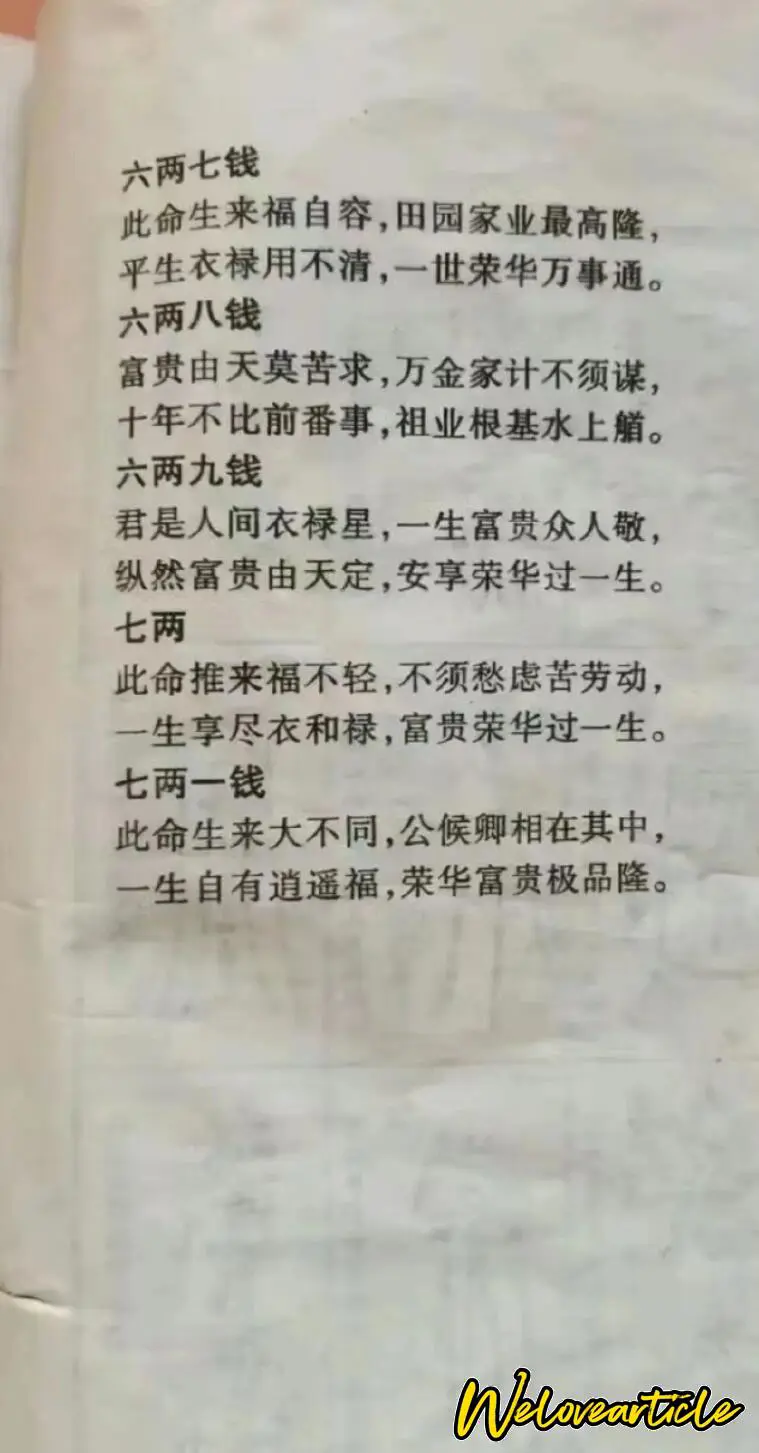 六两七钱
此命生来福自容，田园家业最高隆，
平生衣禄用不清，一世荣华万事通。
六两八钱
富贵由天莫苦求，万金家计不须谋，
十年不比前番事，祖业根基水上艏。
六两九钱
君是人间衣禄星，一生富贵众人敬，
纵然富贵由天定，安享荣华过一生。
七两
此命推来福不轻，不须愁虑苦劳动，
一生享尽衣和禄，富贵荣华过一生。
七两一钱
此命生来大不同，公候卿相在其中，
一生自有逍遥福，荣华富贵极品隆。
Welovearticle